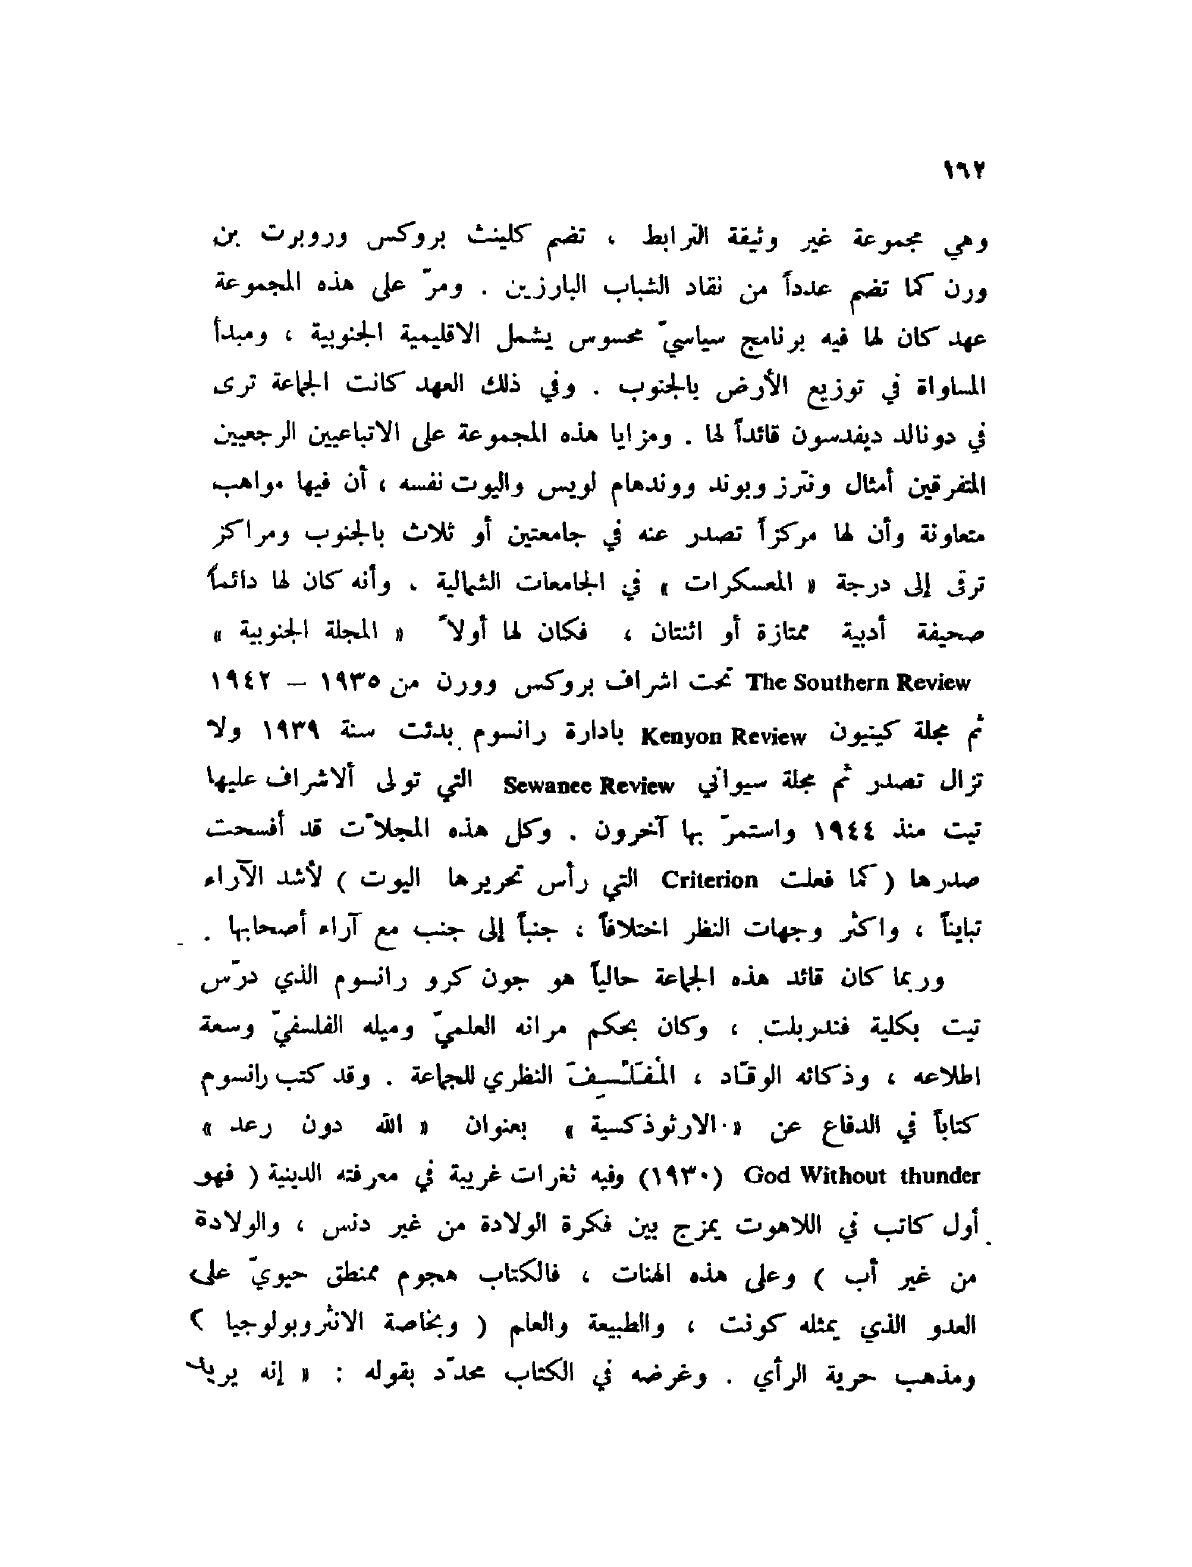 ١٦٢
وهي مجموعة غير وثيقة الترابط ، تضم كلينث بروكس وروبرت بن
ورن كما تضم عدداً من نقاد الشباب البارزين . ومرّ على هذه المجموعة
عهد كان لها فيه برنامج سياسيّ محسوس يشمل الاقليمية الجنوبية ، ومبدأ
المساواة في توزيع الأرض بالجنوب . وفي ذلك العهد كانت الجماعة ترى
في دونالد ديفدسون قائداً لها . ومزايا هذه المجموعة على الاتباعيين الرجعيين
المتفرقين أمثال ونترز وبوند ووندهام لويس واليوت نفسه ، أن فيها مواهب
متعاونة وأن لها مركزاً تصدر عنه في جامعتين أو ثلاث بالجنوب ومراكز
ترقى إلى درجة « المعسكرات » في الجامعات الشمالية . وأنه كان لها دائماً
صحيفة أدبية ممتازة أو اثنتان ، فكان لها أولاً « المجلة الجنوبية »
The Southern Review تحت اشراف بروكس وورن من ١٩٣٥ – ١٩٤٢
ثم مجلة كينيون Kenyon Review بادارة رانسوم بدئت سنة ١٩٣٩ ولا
تزال تصدر ثم مجلة سيواني Sewanee Review التي تولى ألاشراف عليها
تيت منذ ١٩٤٤ واستمرّ بها آخرون . وكل هذه المجلاّت قد أفسحت
صدرها ( كما فعلت Criterion التي رأس تحريرها اليوت ) لأشد الآراء
تبايناً ، واكثر وجهات النظر اختلافاً ، جنباً إلى جنب مع آراء أصحابها .
وربما كان قائد هذه الجماعة حالياً هو جون كرو رانسوم الذي درّس
تيت بكلية فندربلت ، وكان بحكم مرانه العلميّ وميله الفلسفيّ وسعة
اطلاعه ، وذكائه الوقّاد ، المُفَلْسِفَ النظري للجماعة . وقد كتب رانسوم
كتاباً في الدفاع عن « الارثوذكسية » بعنوان « الله دون رعد »
God Without thunder (١٩٣٠) وفيه ثغرات غريبة في معرفته الدينية ( فهو
أول كاتب في اللاهوت يمزج بين فكرة الولادة من غير دنس ، والولادة
من غير أب ) وعلى هذه الهنات ، فالكتاب هجوم ممنطق حيويّ على
العدو الذي يمثله كونت ، والطبيعة والعلم ( وبخاصة الانثروبولوجيا )
ومذهب حرية الرأي . وغرضه في الكتاب محدّد بقوله : « إنه يريد